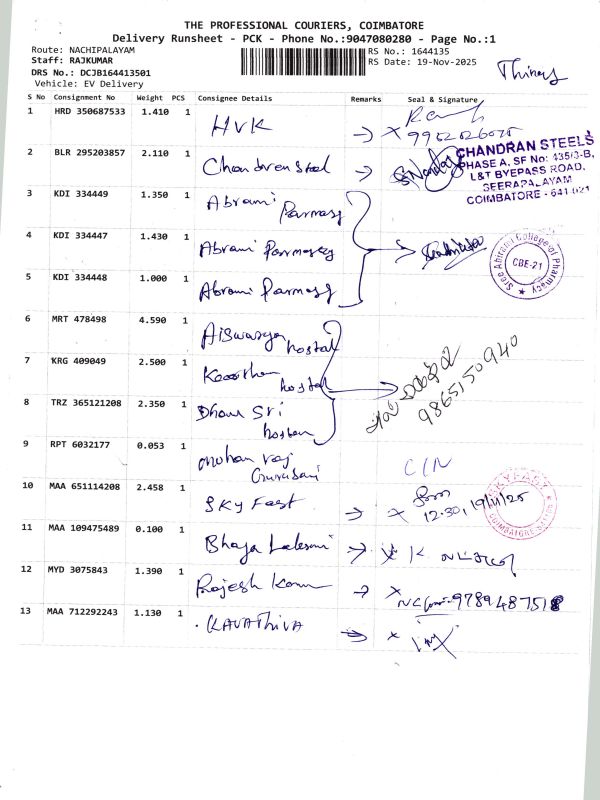 THE PROFESSIONAL COURIERS, COIMBATORE
Delivery Runsheet - PCK - Phone No.:9047080280 - Page No.:1
Route: NACHIPALAYAM
Staff: RAJKUMAR
DRS No.: DCJB164413501
Vehicle: EV Delivery
RS No.: 1644135
RS Date: 19-Nov-2025
S No Consignment No Weight PCS Consignee Details Remarks Seal & Signature
1 HRD 350687533 1.410 1 HVK
2 BLR 295203857 2.110 1 Chandren Steel
CHANDRAN STEELS
PHASE A, SF No: 435/3-B,
L&T BYEPASS ROAD,
SEERAPALAYAM
COIMBATORE - 641 021
3 KDI 334449 1.350 1 Abrami
4 KDI 334447 1.430 1 Abrami
5 KDI 334448 1.000 1 Abrami
Sree Abirami College of Pharmacy
CBE-21
6 MRT 478498 4.590 1 Aiswarya hostal
7 KRG 409049 2.500 1 hostal
9865150940
8 TRZ 365121208 2.350 1 Dhana Sri
9 RPT 6032177 0.053 1 mohan raj
C/N
10 MAA 651114208 2.458 1 SKY Fast
12:30, 19/11/25
SKYFAST
11 MAA 109475489 0.100 1
12 MYD 3075843 1.390 1 Rajesh
9789487518
13 MAA 712292243 1.130 1 KAVATHIVA